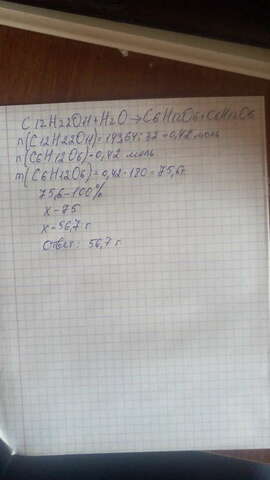 C12H22O11+H2O→C6H12O6+C6H12O6
n(C12H22O11)=143,64:32=0,42 моль
n(C6H12O6)=0,42 моль
m(C6H12O6)=0,42·180=75,6г
75,6-100%
x-75
x-56,7 г
ответ: 56,7 г